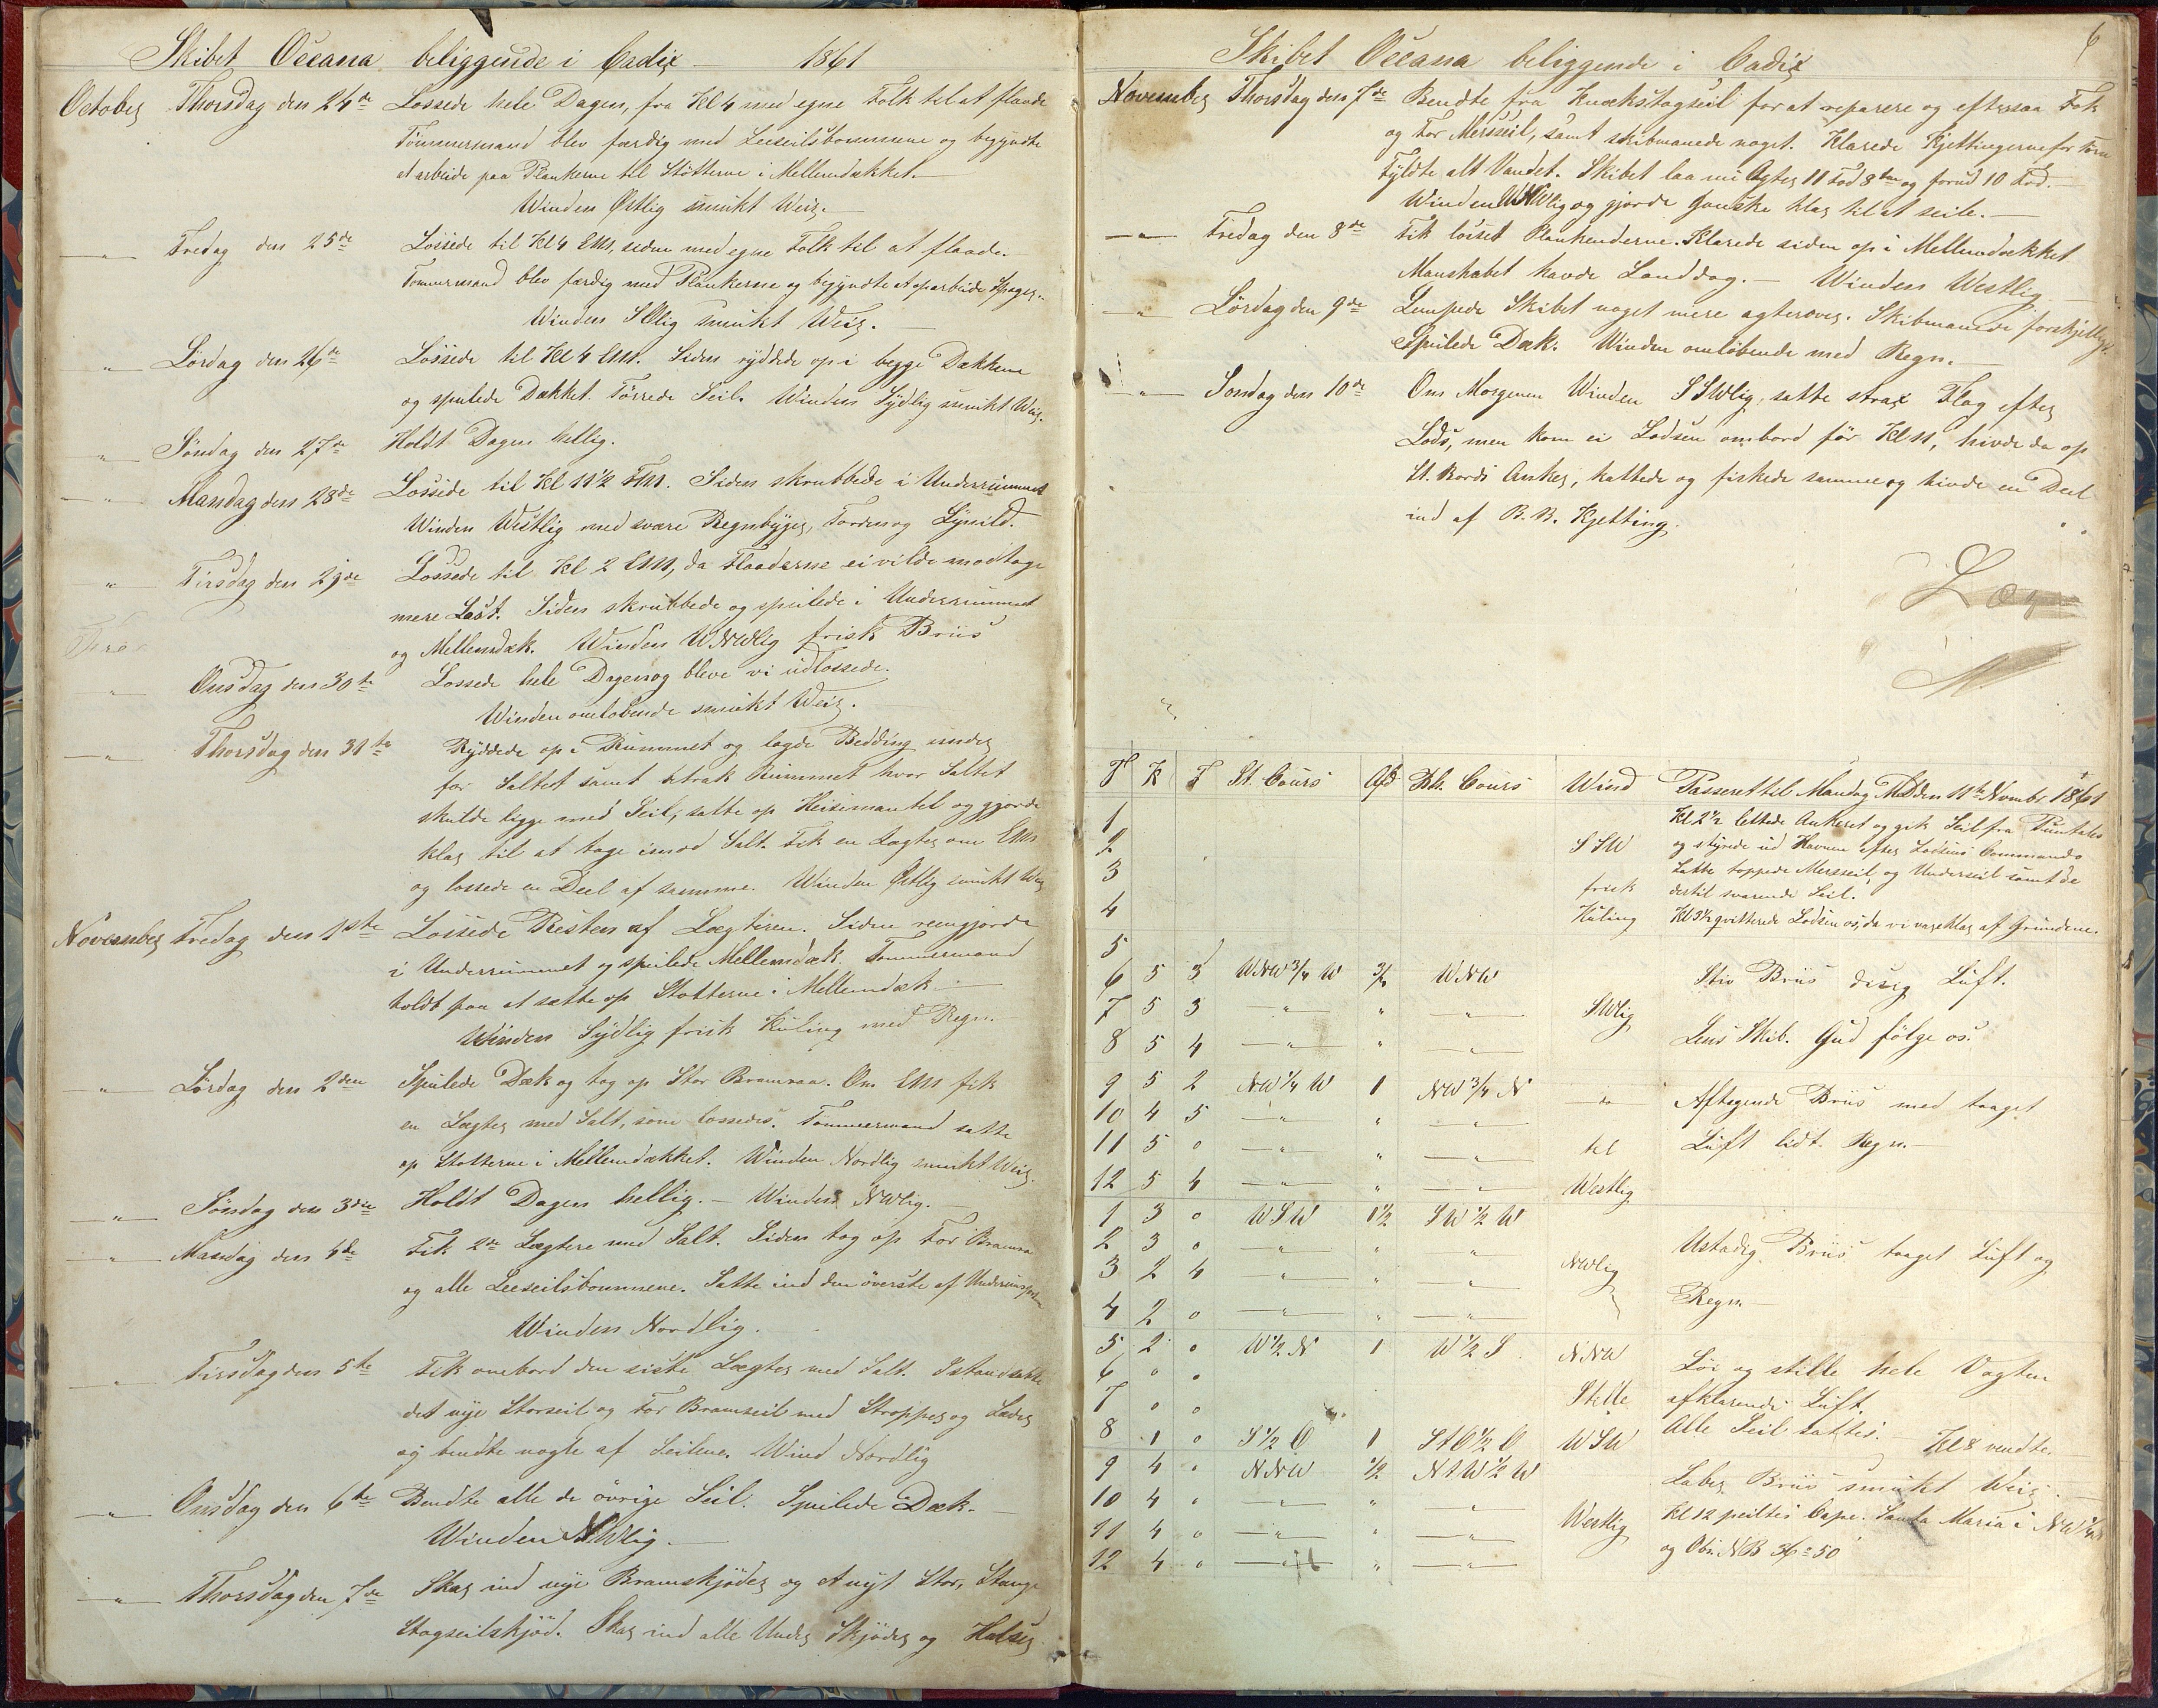 Skibet Oceana beliggende i Cadix — 1861
October Thorsdag den 24de Lossede hele Dagen, fra Kl 4 med egne Folk til at flaade
Tömmermand blev færdig med Leeseilsbommene og begyndte
at arbeide paa Plankerne til Stötterne i Mellemdækket.—
Winden Östlig smukt Weir.—
—"— Fredag den 25de Lossede til Kl 4 EM, siden med egne Folk til at flaade.—
Tömmermand blev færdig med Plankerne og begyndte at oparbeide Spager.
Winden SOlig smukt Weir.
"— Lördag den 26de Lossede til Kl 4 EM. Siden ryddede op i begge Dækkene
og spulede Dækket. Törrede Seil. Winden Sydlig smukt Weir.
"— Söndag den 27de Holdt Dagen hellig.
—"— Mandag den 28de Lossede til Kl 11½ FM. Siden skrubbede i Underrummet
Winden Westlig med svære Regnbyger, Torden og Lynild.
" Tirsdag den 29de Lossede til Kl 2 EM, da Flaaderne ei vilde modtage
mere Last. Siden skrubbede og spulede i Underrummet
og Mellemdæk. Winden WNWlig frisk Briis
" Onsdag den 30te Lossede hele Dagen og bleve vi udlossede.
Winden omlöbende smukt Weir.
—"— Thorsdag den 31te Ryddede op i Rummet og lagde Bedding under
for Saltet samt betrak Rummet hvor Saltet
skulde ligge med Seil, satte op Heisemantel og gjorde
klar til at tage imod Salt. Fik en Lægter om EM
og lossede en Deel af samme. Winden Östlig smukt Weir
November Fredag den 1ste Lossede Resten af Lægteren. Siden reengjorde
i Underrummet og spulede Mellemdæk. Tömmermand
holdt paa at sætte op Stötterne i Mellemdæk —
Winden Sydlig frisk Kuling med Regn.—
"— Lördag den 2den Spulede Dæk og tog op Stor Bramraa. Om EM fik
en Lægter med Salt, som lossedes. Tömmermand satte
op Stötterne i Mellemdækket. Winden Nordlig smukt Weir.
—"— Söndag den 3die Holdt Dagen hellig.— Winden NWlig.—
"— Mandag den 4de Fik 2de Lægtere med Salt. Siden tog op For Bramraa
og alle Leeseilsbommene. Satte ind den överste af
Winden Nordlig.—
—"— Tirsdag den 5te Fik ombord den siste Lægter med Salt. Istandsatte
det nye Storseil og For Bramseil med Stropper og Læder
og bendte nogle af Seilene. Wind Nordlig
—"— Onsdag den 6te Bendte alle de övrige Seil. Spulede Dæk.—
Winden NWlig.—
—"— Thorsdag den 7de Skar ind nye Bramskjöder og et nyt Stor, Stænge
Stagseilskjöd. Skar ind alle Under Skjöder og Halser
6
Skibet Oceana beliggende i Cadix
November Thorsdag den 7de Bendte fra Knækstagseil for at reparere og eftersaa Fok
og For Merseil, samt skibmanede noget. Klarede Kjettingerne for Törn
Fyldte alt Vandet. Skibet laa nu Agter 11 Fod 8 tm og forud 10 Fod.—
Winden WNWlig og gjorde ganske klar til at seile.—
—"— Fredag den 8de Fik losset Plankenderne. Klarede siden op i Mellemdækket
Manskabet havde Landdag.— Winden Westlig.—
—"— Lördag den 9de Lempede Skibet noget mere agterover. Skibmanede forskjelligt.
Spulede Dæk. Winden omlöbende med Regn.—
—"— Söndag den 10de Om Morgenen Winden SSWlig, satte strax Flag efter
Lods, men kom ei Lodsen ombord för Kl 11, hivde da op
St. Bords Anker, kattede og fiskede samme og hivde en Deel
ind af B.B. Kjetting.
T K F St. Cours Afd Bh. Cours Wind Passeret til Mandag Md den 11te Novmbr 1861
1 Kl 2½ lettede Ankeret og gik Seil fra Puntales
2 SSW og styrede ud Havnen efter Lodsens Commando
3 Satte toppede Merseil og Underseil samt de
frisk dertil svarende Seil.
4 Kuling Kl 3½ qvitterede Lodsen os, da vi vare klar af Grundene.
5
6 5 3 WNW¾W ¾ WNW Stiv Briis disig Luft.
7 5 3 —"— " —"— SWlig
8 5 4 —"— " —"— Lens Skib. Gud fölge os.
9 5 2 NW¼W 1 NW¾N —"— Aftagende Briis med taaget
10 4 5 —"— " —"—
11 5 0 —"— " —"— til Luft lidt Regn.—
12 5 4 —"— " —"— Westlig
1 3 0 WSW 1½ SW½W
2 3 0 —"— " " Ustadig Briis taaget Luft og
3 2 4 —"— " " NWlig
4 2 0 —"— " —"— Regn.—
5 2 0 W½N 1 W½S NNW Löi og stille hele Vagten
6 0 0
7 0 0 Stille afklarende Luft.
8 1 0 S½O 1 StO½O WSW Alle Seil sattes.— Kl 8 vendte.
9 4 0 NNW ½ NtW½W Laber Briis smukt Weir.—
10 4 0 —"— " —"—
11 4 0 —"— " —"— Westlig Kl 12 peiltes Cape Santa Maria i NW¼W
12 4 0 —"— " —"— og Obs. NB 36° 50'